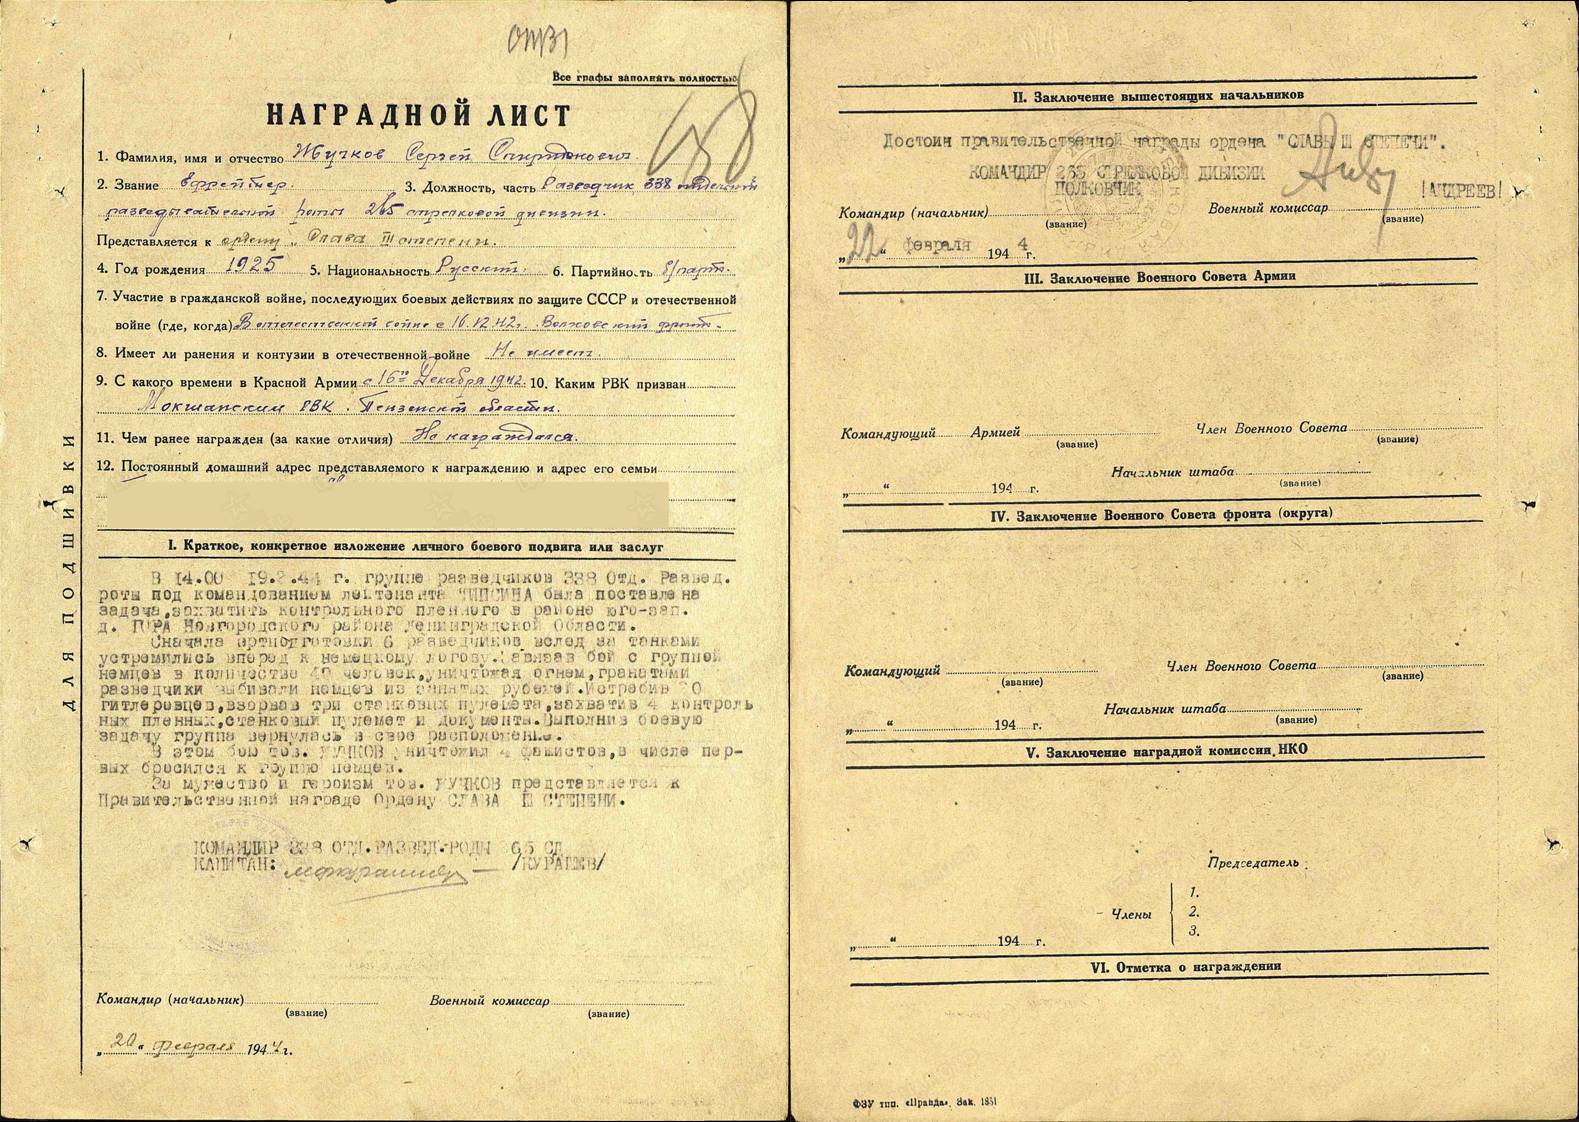 Все графы заполнять полностью
НАГРАДНОЙ ЛИСТ
1. Фамилия, имя и отчество Жучков Сергей Спиридонович.
2. Звание Ефрейтор. 3. Должность, часть Разведчик 338 отдельной
разведывательной роты 265 стрелковой дивизии.
Представляется к ордену „Слава III степени.
4. Год рождения 1925 5. Национальность Русский. 6. Партийность б/парт.
7. Участие в гражданской войне, последующих боевых действиях по защите СССР и отечественной
войне (где, когда) В отечественной войне с 16.12.42г. Волховский фронт.
8. Имеет ли ранения и контузии в отечественной войне Не имеет.
9. С какого времени в Красной Армии с 16го Декабря 1942. 10. Каким РВК призван
Мокшанским РВК. Пензенской области.
11. Чем ранее награжден (за какие отличия) Не награждался.
12. Постоянный домашний адрес представляемого к награждению и адрес его семьи
ДЛЯ ПОДШИВКИ
I. Краткое, конкретное изложение личного боевого подвига или заслуг
В 14.00 19.2.44 г. группе разведчиков 338 Отд. Развед.
роты под командованием лейтенанта была поставлена
задача,захватить контрольного пленного в районе юго-зап.
д. Новгородского района Ленинградской Области.
Сначала артподготовки 6 разведчиков вслед за танками
устремились вперед к немецкому логову.Завязав бой с группой
немцев в количестве 40 человек,уничтожая огнем,гранатами
разведчики выбивали немцев из занятых рубежей.Истребив 20
гитлеровцев,взорвав три станковых пулемета,захватив 4 контроль
ных пленных,станковый пулемет и документы.Выполнив боевую
задачу группа вернулась в свое расположение.
В этом бою тов. ЖУЧКОВ уничтожил 4 фашистов,в числе пер-
вых бросился к группе немцев.
За мужество и героизм тов. ЖУЧКОВ представляется к
Правительственной награде Ордену СЛАВА III СТЕПЕНИ.
КОМАНДИР 338 ОТД.РАЗВЕД.РОТЫ 265 СД
КАПИТАН: /КУРАШЕВ/
Командир (начальник) Военный комиссар
(звание) (звание)
„20“ февраля 1944г.
II. Заключение вышестоящих начальников
Достоин правительственной награды ордена "СЛАВЫ III СТЕПЕНИ".
КОМАНДИР 265 СТРЕЛКОВОЙ ДИВИЗИИ
ПОЛКОВНИК !АНДРЕЕВ!
Командир (начальник) Военный комиссар
(звание) (звание)
„22“ февраля 1944 г.
III. Заключение Военного Совета Армии
Командующий Армией Член Военного Совета
(звание) (звание)
Начальник штаба
(звание)
„ “ 194 г.
IV. Заключение Военного Совета фронта (округа)
Командующий Член Военного Совета
(звание) (звание)
Начальник штаба
(звание)
„ “ 194 г.
V. Заключение наградной комиссии НКО
Председатель
Члены
1.
2.
3.
„ “ 194 г.
VI. Отметка о награждении
ФЗУ тип. «Правда». Зак. 1851